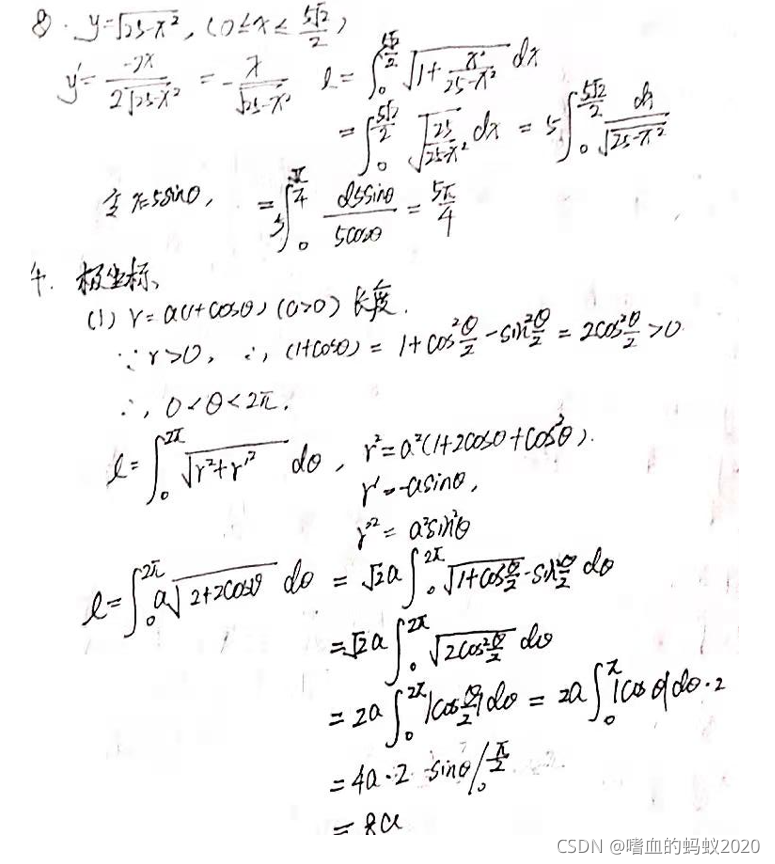 8. y=√(25-x²), (0≤x≤5√2/2)
y'=-2x/(2√(25-x²)) = -x/√(25-x²) l=∫₀^(5√2/2) √(1+x²/(25-x²)) dx
=∫₀^(5√2/2) √(25/(25-x²)) dx = 5∫₀^(5√2/2) dx/√(25-x²)
令x=5sinθ, =5∫₀^(π/4) d5sinθ/(5cosθ) = 5π/4
4. 极坐标、
(1) r=a(1+cosθ) (a>0) 长度.
∵r>0, ∴ (1+cosθ) = 1+cos²θ/2-sin²θ/2 = 2cos²θ/2>0.
∴, 0<θ<2π.
l=∫₀^(2π) √(r²+r'²) dθ, r²=a²(1+2cosθ+cos²θ).
r'=-asinθ,
r'²=a²sin²θ
l=∫₀^(2π) a√(2+2cosθ) dθ = √2a∫₀^(2π) √(1+cos²θ/2-sin²θ/2) dθ
=√2a∫₀^(2π) √(2cos²θ/2) dθ
=2a∫₀^(2π) |cosθ/2|dθ = 2a∫₀^π |cosθ|dθ·2
=4a·2 sinθ|₀^(π/2)
=8a
CSDN @嗜血的蚂蚁2020